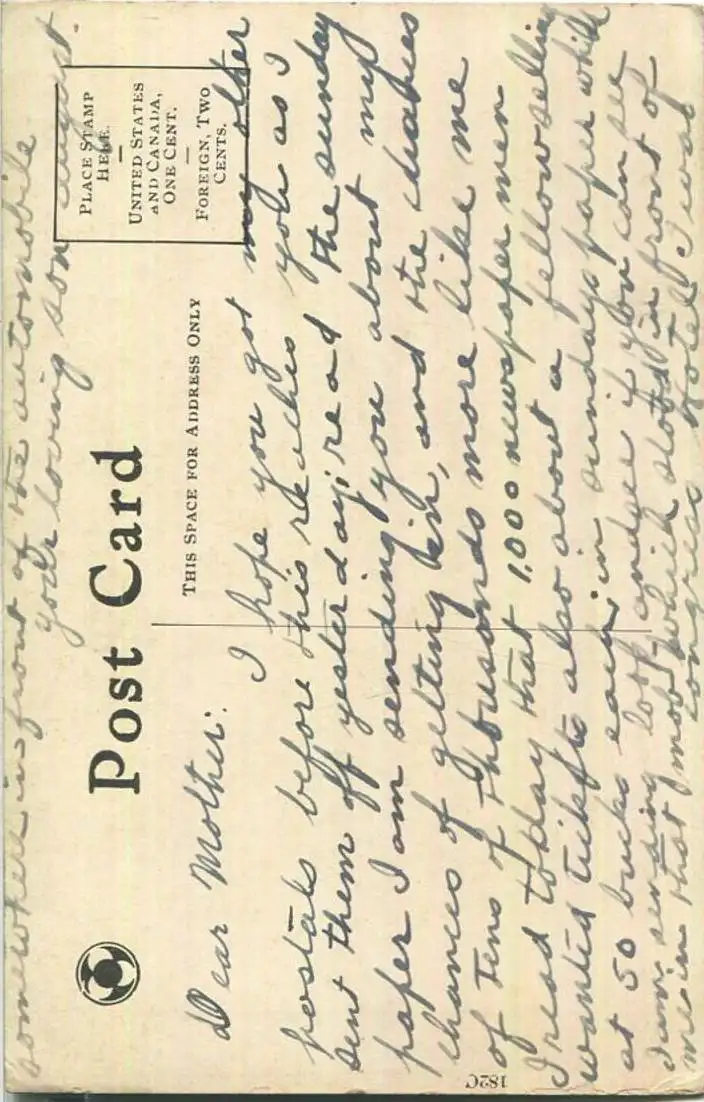 Post Card
THIS SPACE FOR ADDRESS ONLY
PLACE STAMP
HERE.
UNITED STATES
AND CANADA,
ONE CENT.
FOREIGN, TWO
CENTS.
Dear Mother: I hope you got my other
postals before this reaches you as I
sent them off yesterday, read the sunday
paper I am sending you about my
chances of getting in, and the chances
of tens of thousands more like me
I read today that 1,000 newspaper men
wanted tickets also about a fellow selling
at 50 bucks each, in sundays paper which
I am sending look and see if you can see
me in that mob which stood in front of
congress Hotel I was
somewhere in front of the automobile
your loving son august.
182C